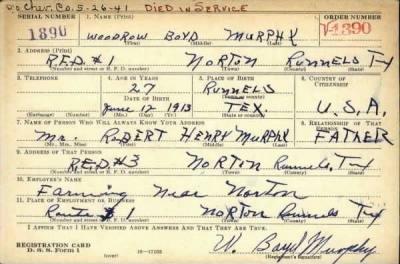 Cher. Co. 5-26-41 DIED IN SERVICE
SERIAL NUMBER 1. NAME (Print) ORDER NUMBER
1890 WOODROW BOYD MURPHY V-1890
(First) (Middle) (Last)
2. ADDRESS (Print)
R.F.D. #1 NORTON RUNNELS TX
(Number and street or R. F. D. number) (Town) (County) (State)
3. TELEPHONE 4. AGE IN YEARS 5. PLACE OF BIRTH 6. COUNTRY OF CITIZENSHIP
27 RUNNELS
DATE OF BIRTH (Town or county)
June 12 1913 TEX. U.S.A.
(Exchange) (Number) (Mo.) (Day) (Yr.) (State or country)
7. NAME OF PERSON WHO WILL ALWAYS KNOW YOUR ADDRESS 8. RELATIONSHIP OF THAT PERSON
Mr. ROBERT HENRY MURPHY FATHER
(Mr., Mrs., Miss) (First) (Middle) (Last)
9. ADDRESS OF THAT PERSON
R.F.D. #3 NORTON Runnels, TX
(Number and street or R. F. D. number) (Town) (County) (State)
10. EMPLOYER'S NAME
Farming Near Norton
11. PLACE OF EMPLOYMENT OR BUSINESS
Route 1 NORTON Runnels TX
(Number and street or R. F. D. number) (Town) (County) (State)
I AFFIRM THAT I HAVE VERIFIED ABOVE ANSWERS AND THAT THEY ARE TRUE.
REGISTRATION CARD
D. S. S. Form 1 (over) W. Boyd Murphy
(Registrant's signature)